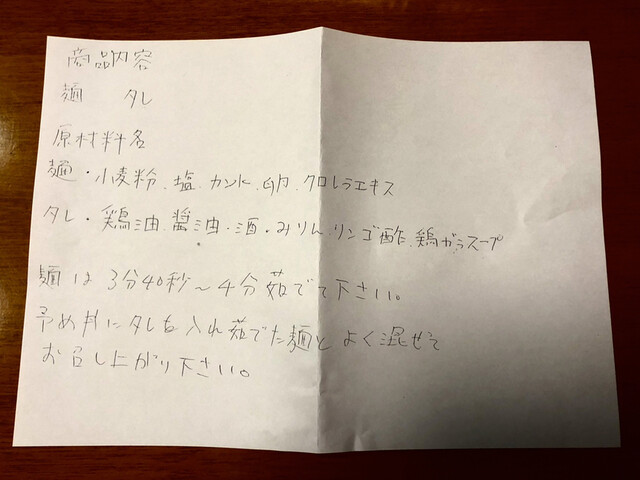 商品内容
麺 タレ
原材料名
麺・小麦粉、塩、カンスイ、卵、クロレラエキス
タレ・鶏油、醤油・酒・みりん、リンゴ酢、鶏ガラスープ
麺は3分40秒~4分茹でて下さい。
予め丼にタレを入れ茹でた麺とよく混ぜて
お召し上がり下さい。